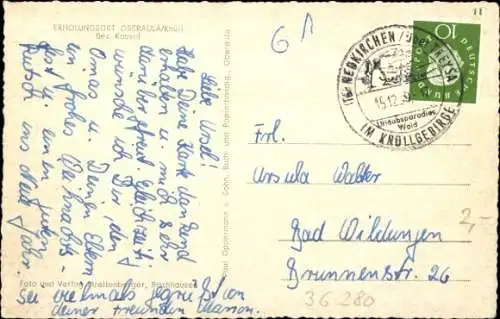 ERHOLUNGSORT OBERAULA/KNÜLL
Bez. Kassel
Liebe Ursel!
Habe Deine Karte dankend
erhalten u. mich sehr
darüber gefreut. Gleichzeitig
wünsche ich Dir, den
Omas u. Deinen Eltern
ein frohes Weihnachts-
fest u. einen guten
Rutsch ins neue Jahr.
Sei vielmals gegrüßt von
deiner Freundin Marion.
Foto und Verlag Breitenberger, Holzhausen
Paul Oppermann u. Sohn, Buch- und Papierhandlg., Oberaula
6
NEUKIRCHEN / über TREYSA
15.12.
Urlaubsparadies
Wald
IM KNÜLLGEBIRGE
10
DEUTSCHE BUNDESPOST
Frl.
Ursula Walter
Bad Wildungen
Brunnenstr. 26
2,-
36 280